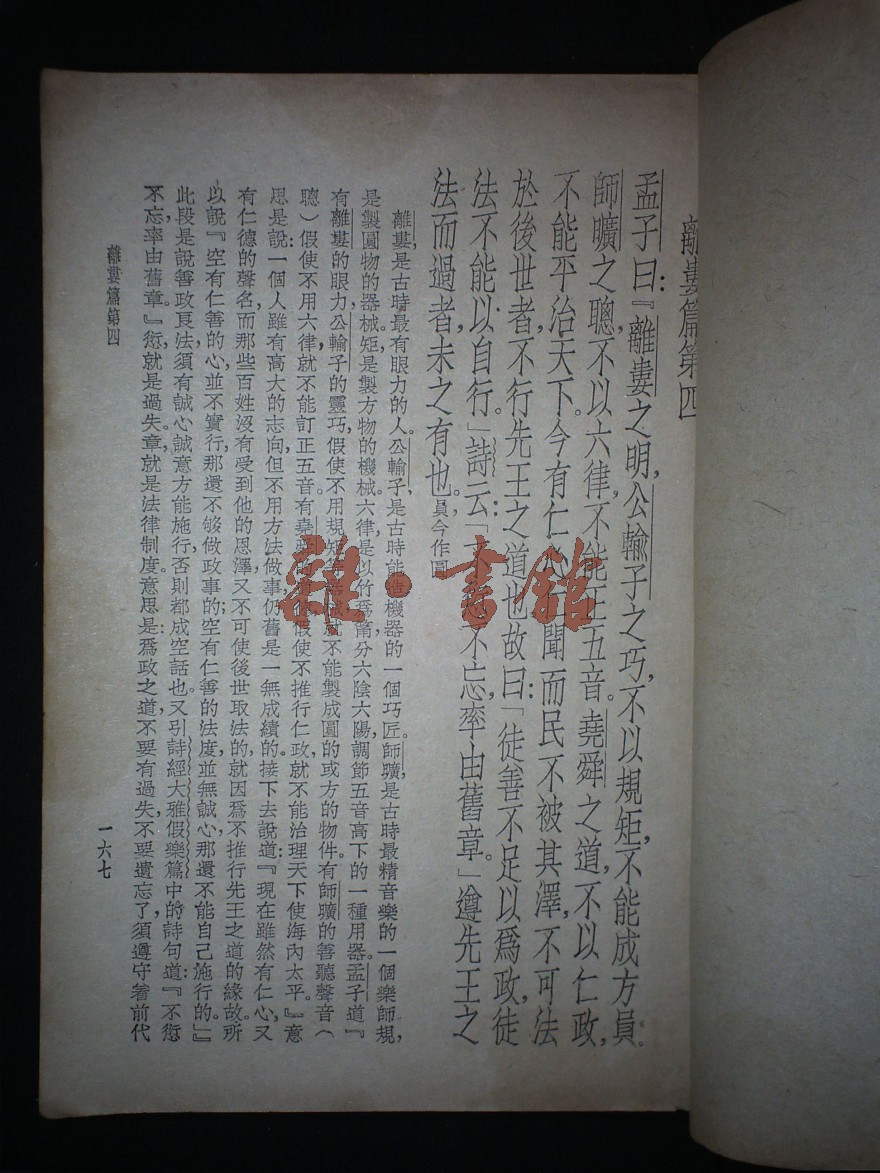 離婁篇第四
孟子曰：『離婁之明，公輸子之巧，不以規矩，不能成方員。
師曠之聰，不以六律，不能正五音。堯舜之道，不以仁政，
不能平治天下。今有仁心聞而民不被其澤，不可法
於後世者，不行先王之道也。故曰：「徒善不足以爲政，徒
法不能以自行。」詩云：「不忘，率由舊章。」遵先王之
法而過者，未之有也。員今作圓
離婁，是古時最有眼力的人。公輸子，是古時能造機器的一個巧匠。師曠，是古時最精音樂的一個樂師。規，
是製圓物的器械，矩是製方物的機械。六律，是以竹爲筩，分六陰六陽，調節五音高下的一種用器。孟子道：『
有離婁的眼力，公輸子的靈巧，假使不用規矩就不能製成圓的或方的物件。有師曠的善聽聲音（
聰）假使不用六律，就不能訂正五音。有堯假使不推行仁政，就不能治理天下，使海內太平。』意
思是說：一個人雖有高大的志向，但不用方法做事，仍舊是一無成績的。接下去說道：『現在雖然有仁心，又
有仁德的聲名，而那些百姓沒有受到他的恩澤，又不可使後世取法的，就因爲不推行先王之道的緣故。所
以說：『空有仁善的心，並不實行，那還不够做政事的；空有仁善的法度，並無誠心，那還不能自己施行的。』』
此段是說善政良法，須有誠心誠意，方能施行，否則都成空話也。又引詩經大雅假樂篇中的詩句道：『不愆
不忘，率由舊章。』愆就是過失。章就是法律制度。意思是：爲政之道，不要有過失，不要遺忘了，須遵守着前代
離婁篇第四
一六七
雜·書館